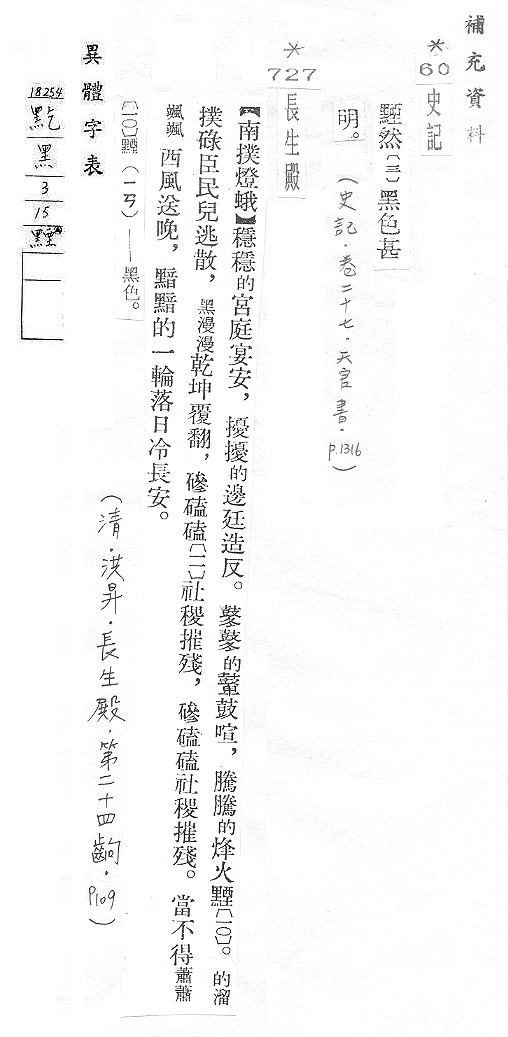 補充資料
*
60
史記
黫然〔三〕黑色甚
明。
(史記．卷二十七．天官書．p.1316)
*
727
長生殿
【南撲燈蛾】穩穩的宮庭宴安，擾擾的邊廷造反。鼕鼕的鼙鼓喧，騰騰的烽火黫〔一〇〕。的溜
撲碌臣民兒逃散，黑漫漫乾坤覆翻，磣磕磕〔一一〕社稷摧殘，磣磕磕社稷摧殘。當不得蕭蕭
颯颯西風送晚，黯黯的一輪落日冷長安。
〔一〇〕黫（一ㄢ）——黑色。
(清．洪昇．長生殿．第二十四齣．P109)
異體字表
18254
黑
3
15
黫